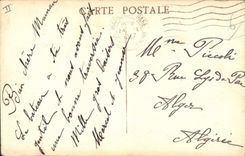 II
CARTE POSTALE
Bien chère Maman
Le bateau a été très
gentil et nous avons fait
une bonne traversée.
Mille gros baisers
Marcel et Jeanne
Mme Piccoli
38 Rue
Alger
Algérie